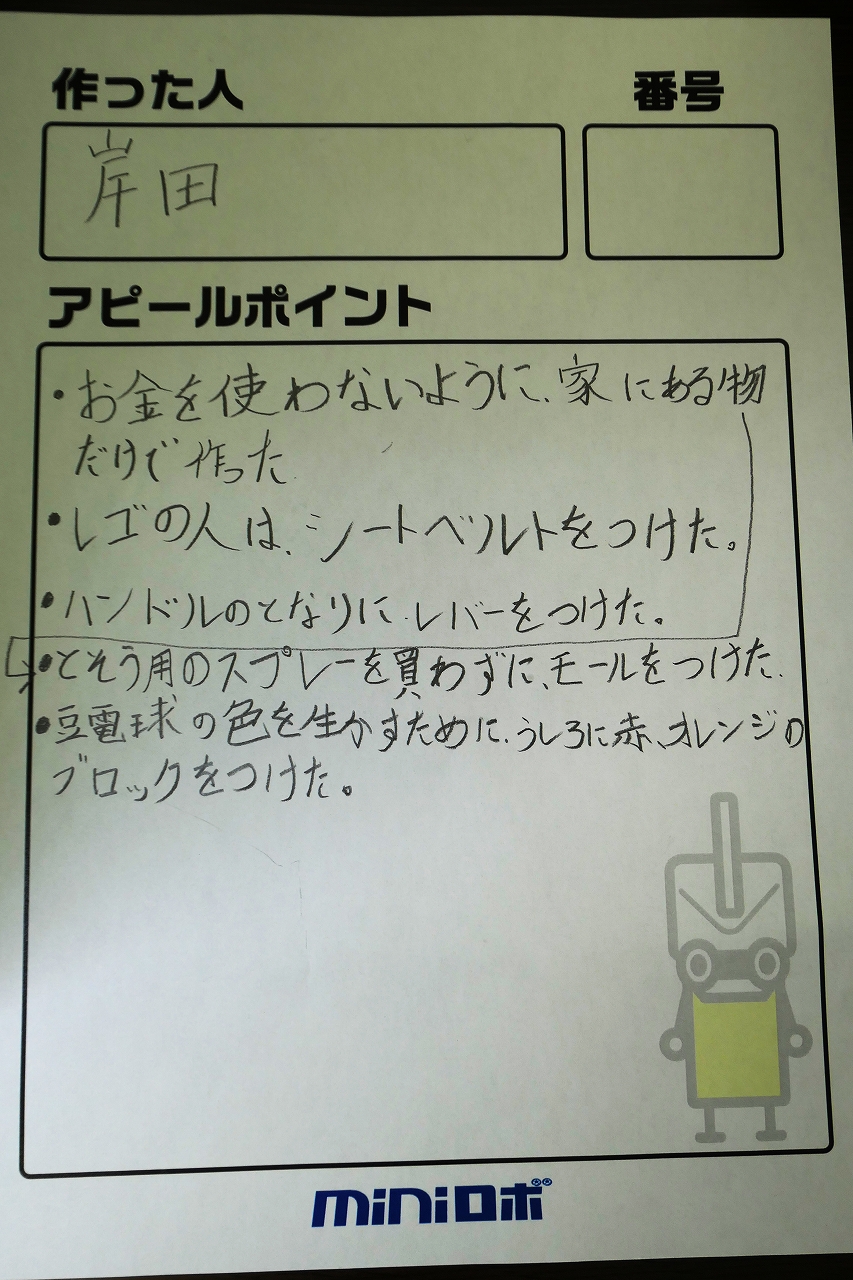 作った人
番号
岸田
アピールポイント
・お金を使わないように、家にある物
だけで作った
・レゴの人は、シートベルトをつけた。
・ハンドルのとなりに、レバーをつけた。
・とそう用のスプレーを買わずに、モールをつけた。
・豆電球の色を生かすために、うしろに赤、オレンジの
ブロックをつけた。
miniロボ